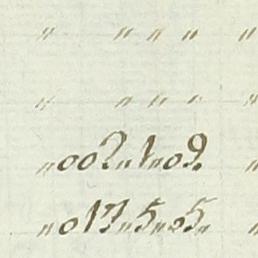 " " " " "
" " " " "
"002"1"09 "
"017"5"05" "